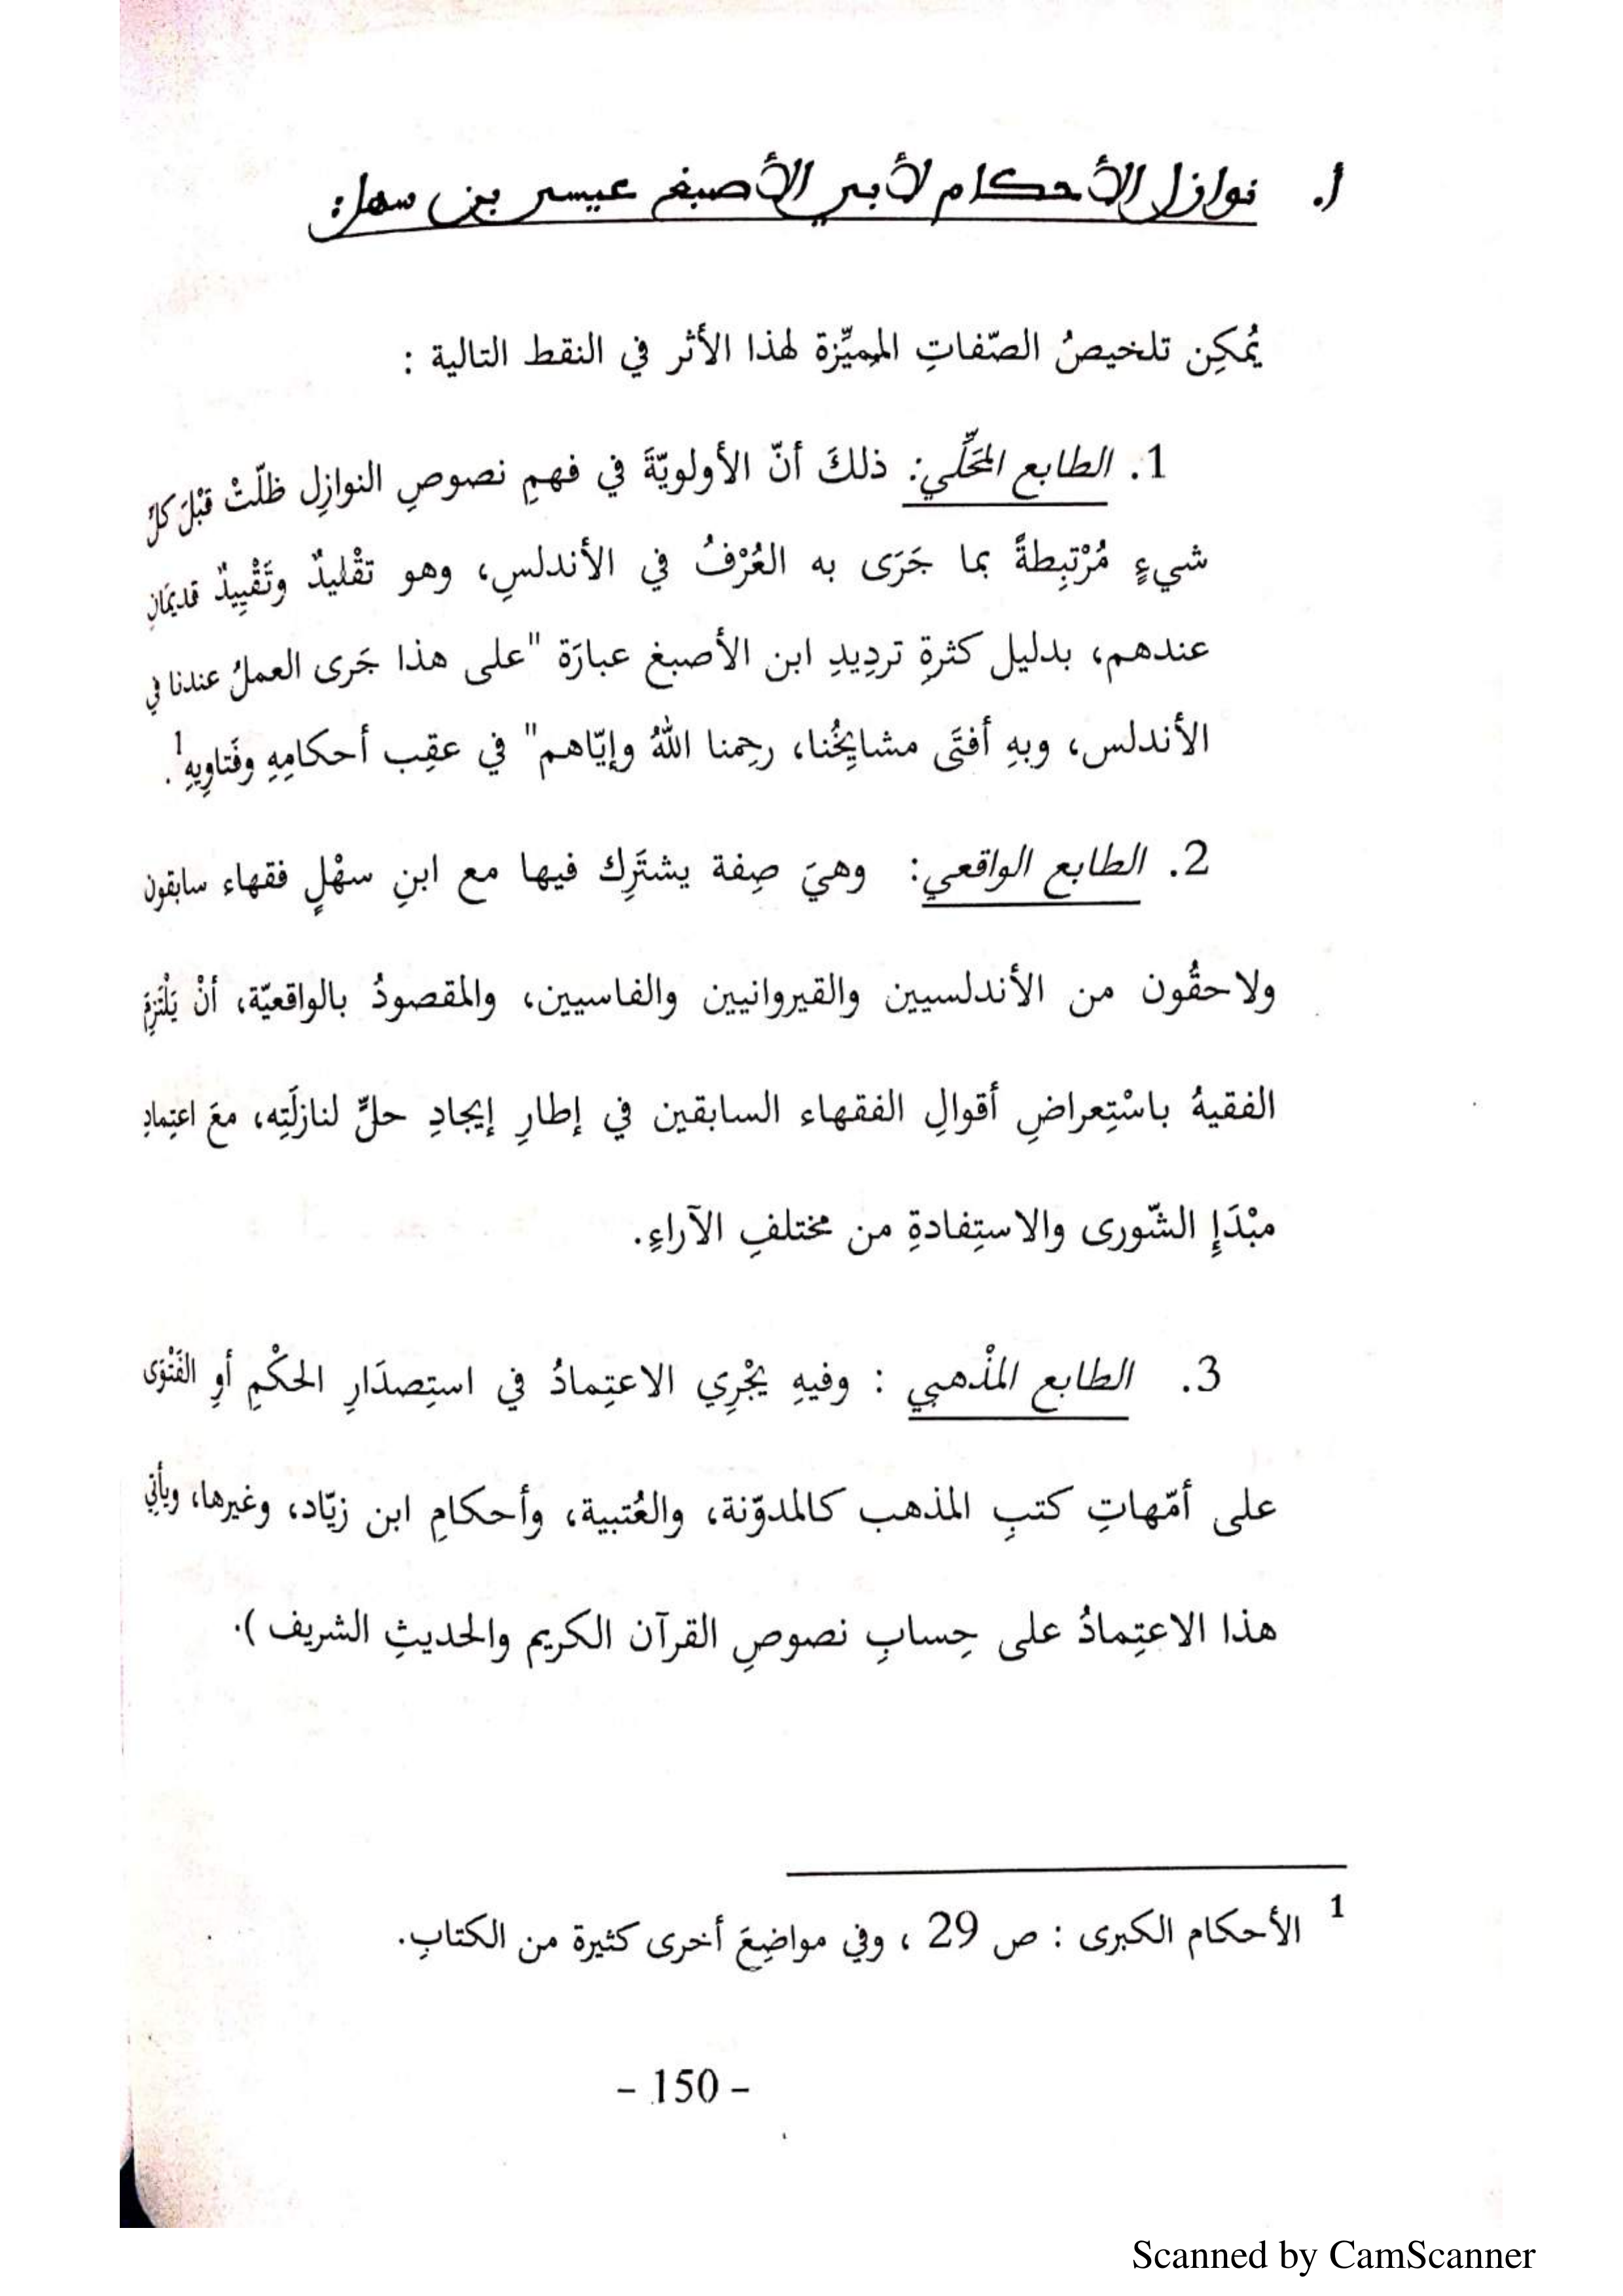 أ. نوازل الأحكام لأبي الأصبغ عيسى بن سهل:
يُمكِن تلخيصُ الصّفاتِ المميِّزة لهذا الأثر في النقط التالية :
1. الطابع المحَلِّي: ذلكَ أنّ الأولويّةَ في فهمِ نصوصِ النوازِل ظلّتْ قبْلَ كلّ
شيءٍ مُرْتبِطةً بما جَرَى به العُرْفُ في الأندلسِ، وهو تقْليدٌ وتَقْيِيدٌ قديمَانِ
عندهم، بدليل كثرةِ ترديدِ ابن الأصبغ عبارَة "على هذا جَرى العملُ عندنا في
الأندلس، وبهِ أفتَى مشايِخُنا، رحِمنا اللهُ وإيّاهم" في عقِب أحكامِهِ وفَتاوِيهِ1.
2. الطابع الواقعي: وهيَ صِفة يشتَرِك فيها مع ابنِ سهْلٍ فقهاء سابقون
ولاحقُون من الأندلسيين والقيروانيين والفاسيين، والمقصودُ بالواقعيّة، أنْ يَلْتَزِمَ
الفقيهُ باسْتِعراضِ أقوالِ الفقهاء السابقين في إطارِ إيجادِ حلٍّ لنازلَتِه، معَ اعتِمادِ
مبْدَإِ الشّورى والاستِفادةِ من مختلفِ الآراءِ.
3. الطابع المذْهبي : وفيهِ يجْرِي الاعتِمادُ في استِصدَارِ الحكْمِ أوِ الفَتْوَى
على أمّهاتِ كتبِ المذهب كالمدوّنة، والعُتبية، وأحكامِ ابن زيّاد، وغيرها، ويأتي
هذا الاعتِمادُ على حِسابِ نصوصِ القرآن الكريم والحديثِ الشريف ).
1 الأحكام الكبرى : ص 29 ، وفي مواضِعَ أخرى كثيرة من الكتابِ.
- 150 -
Scanned by CamScanner